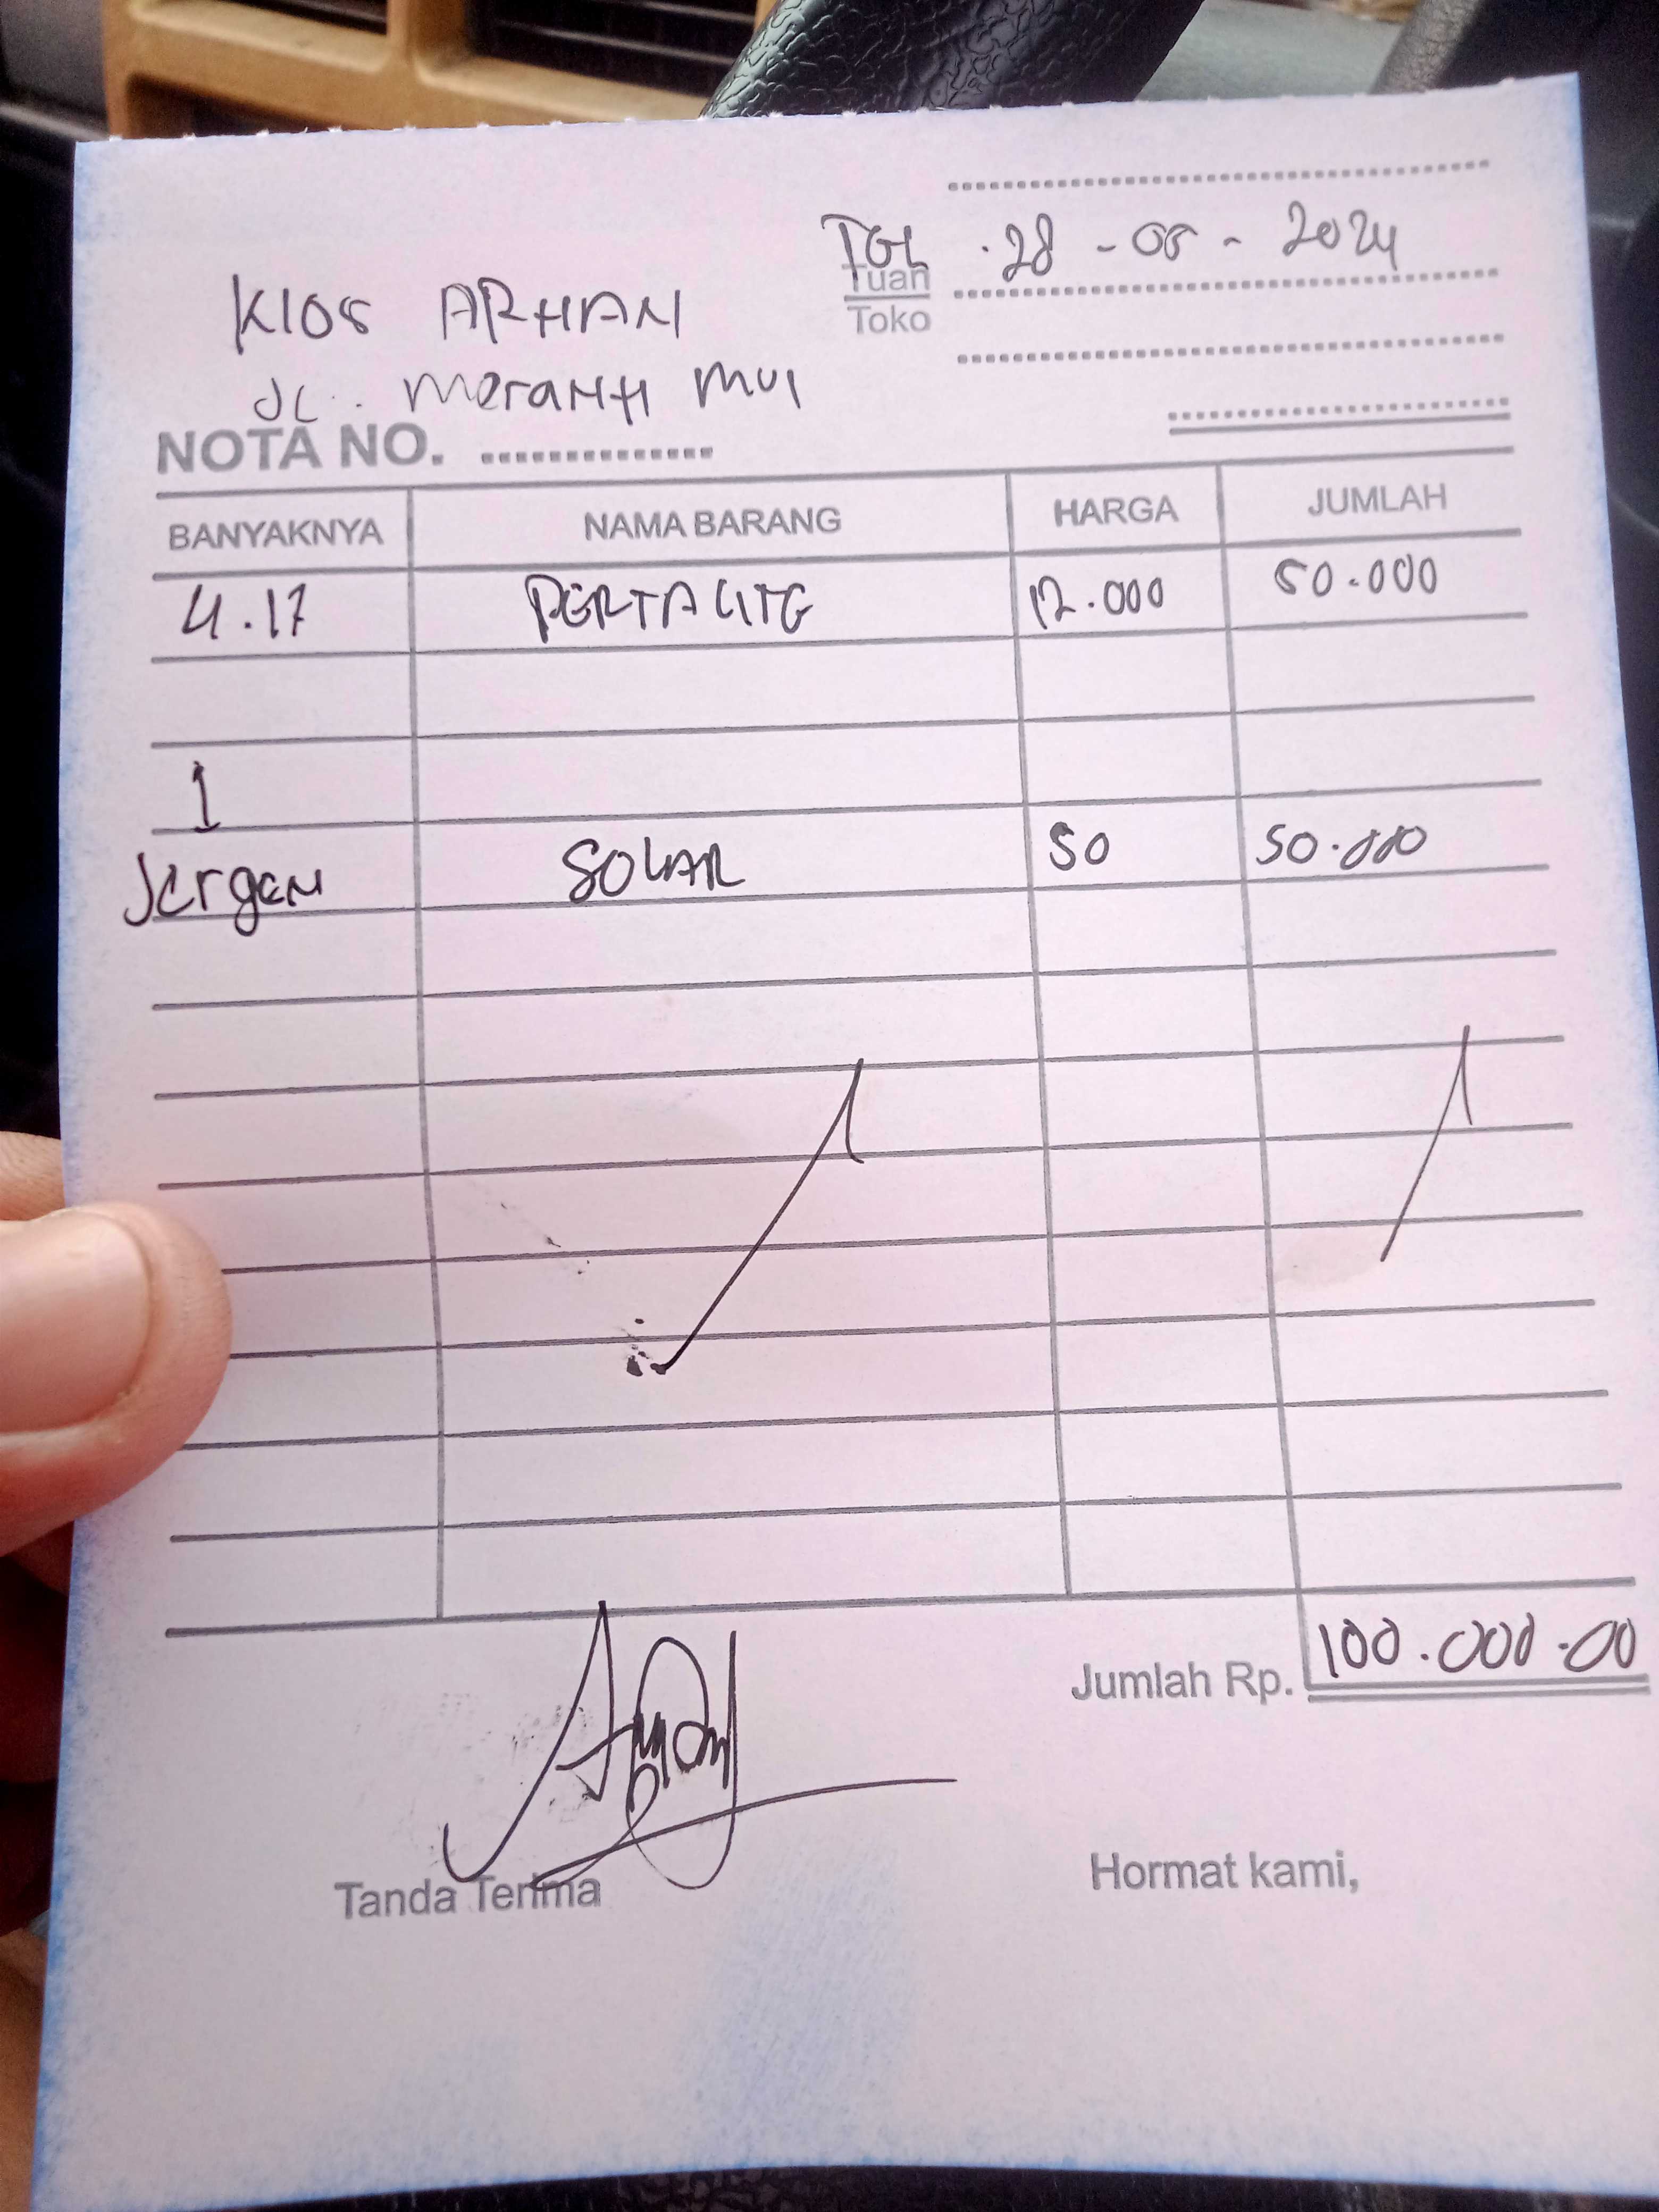 TGL . 28 - 08 - 2024
Tuan
Toko
KIOS ARHAN
JL. Meranti
NOTA NO. ...............
BANYAKNYA NAMA BARANG HARGA JUMLAH
4.17 PERTALITE 12.000 50.000
1
Jergen SOLAR 50 50.000
Jumlah Rp. 100.000.00
Tanda Terima Hormat kami,